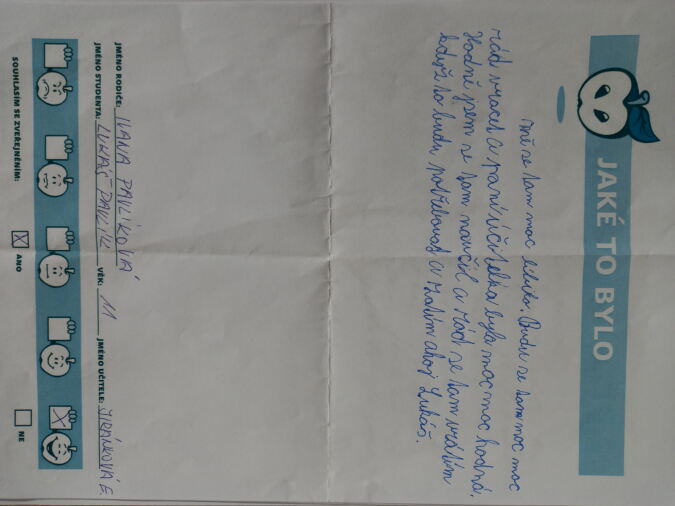 JAKÉ TO BYLO
mě se tam moc líbilo. Budu se tam moc moc
rád vracet a paní učitelka byla moc moc hodná.
Hodně jsem se tam naučil a rád se tam vrátím
když to budu potřebovat a zatím ahoj Lukáš.
JMÉNO RODIČE: IVANA PAVLÍKOVÁ
JMÉNO STUDENTA: LUKÁŠ PAVLÍK VĚK: 11 JMÉNO UČITELE: E.
SOUHLASÍM SE ZVEŘEJNĚNÍM: ANO NE